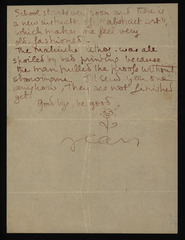 School starts soon and there is
a new instructor of "abstract art",
which makes me feel very
old-fashioned.
The Malinche lithog. was all
spoiled by bad printing because
the man pulled the proofs without
showing me. I'll send you one
anyhow. They are not finished
yet.
Good bye, be good
Jean